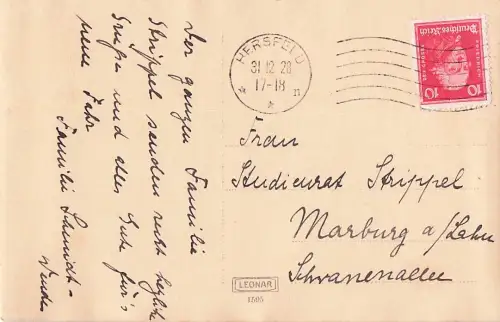 Der ganzen Familie
Strippel senden recht herzliche
Grüße und alles Gute für's
neue Jahr
Familie Schmidt-
HERSFELD
31.12.28
17-18 n
Deutsches Reich
10 10
Frau
Studienrat Strippel
Marburg a/Lahn
Schwanenallee
LEONAR
1505